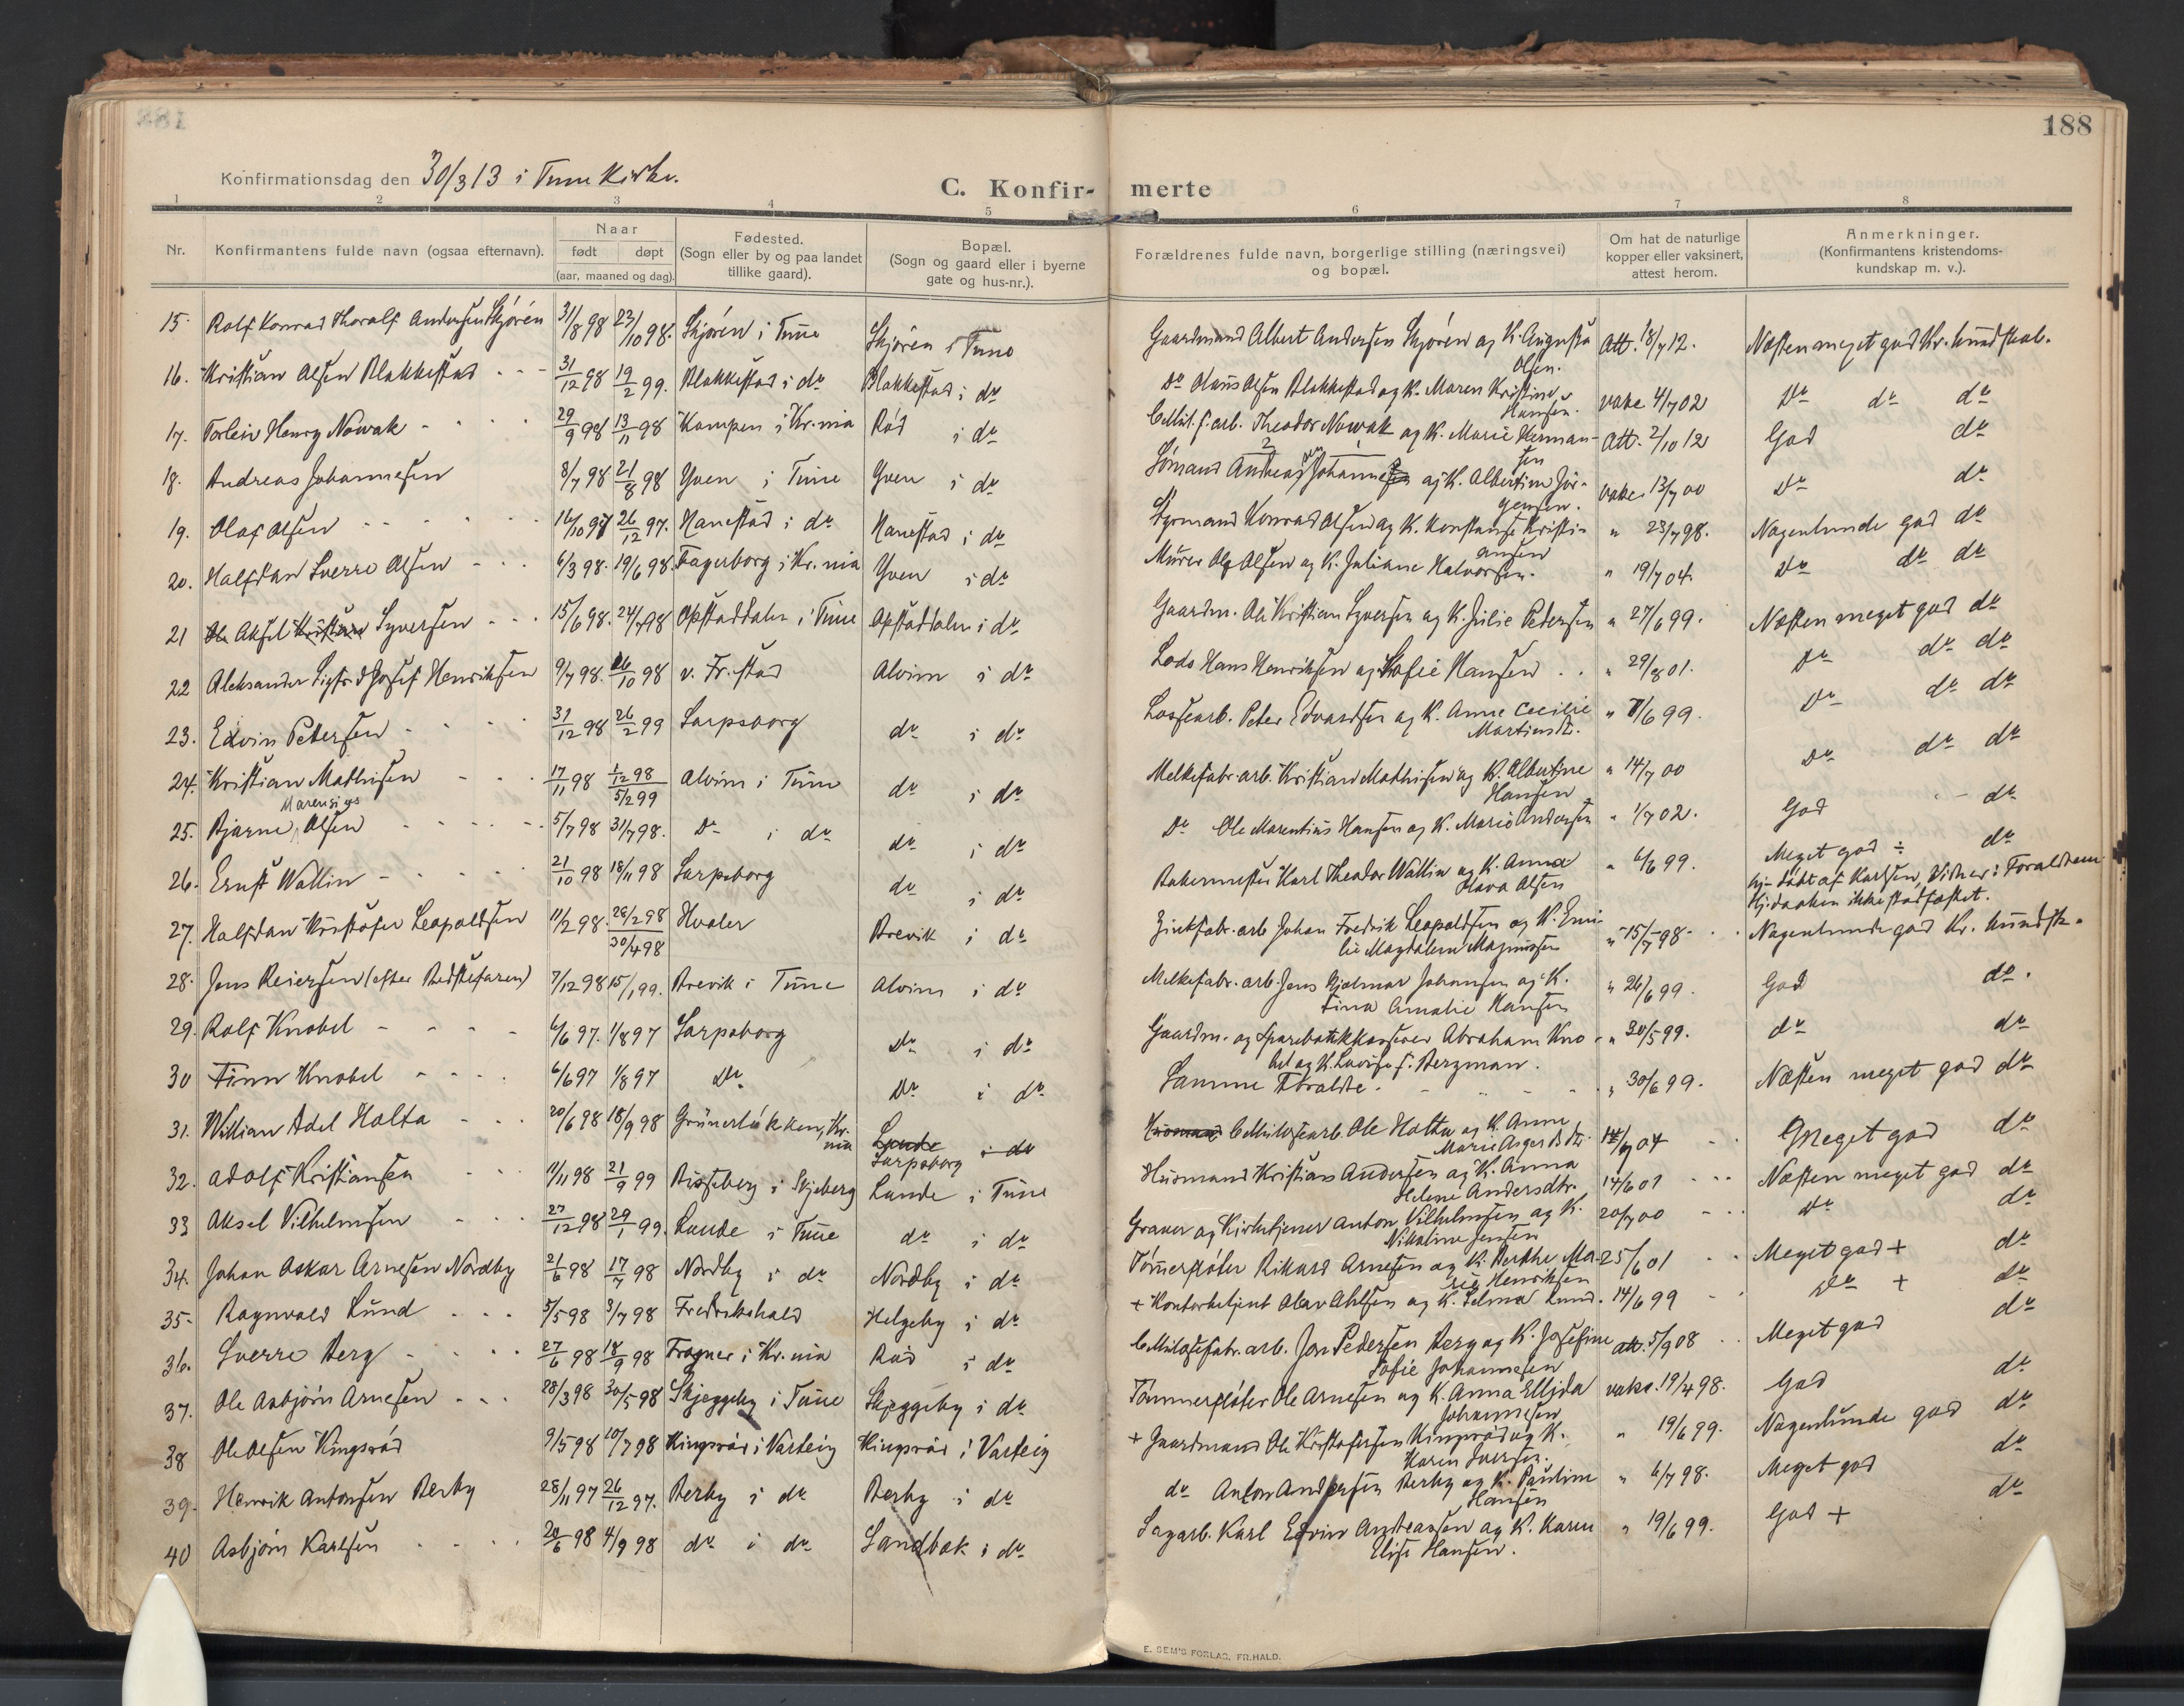 188
Konfirmationsdag den 30/3 13 i Tune Kirke.
C. Konfir- merte
1 2 3 4 5 6 7 8
Nr. Konfirmantens fulde navn (ogsaa efternavn). Naar født døpt (aar, maaned og dag). Fødested. (Sogn eller by og paa landet tillike gaard). Bopæl. (Sogn og gaard eller i byerne gate og hus-nr.). Forældrenes fulde navn, borgerlige stilling (næringsvei) og bopæl. Om hat de naturlige kopper eller vaksinert, attest herom. Anmerkninger. (Konfirmantens kristendoms-kundskap m. v.).
15. Rolf Konrad Thoralf Andersen Skjøren 31/8 98 23/10 98. Skjøren i Tune Skjøren i Tune Gaardmand Albert Andersen Skjøren og K. Augusta Olsen. Att. 18/7 12. Næsten meget god Kr. kundskab.
16. Kristian Olsen Blakkestad 31/12 98 19/2 99. Blakkestad i do Blakkestad i do Do Olaus Olsen Blakkestad og K. Maren Kristine Hansen. vakc 4/7 02 Do do do
17. Torleiv Henry Nowak 29/9 98 13/11 98 Kampen i Kr.nia Råd i do Cellul.f.arb. Theodor Nowak og K. Marie Hermansen Att. 2/10 12 God do
18. Andreas Johannesen 8/7 98 21/8 98 Yven i Tune Yven i do Sømand Andreas Johannesen og K. Albertine Jörgensen. vakc. 13/7 00 Do do
19. Olaf Olsen 16/10 97 26/12 97. Hanestad i do Hanestad i do Styrmand Konrad Olsen og K. Konstanse Kristiansen " 23/7 98. Nogenlunde god do
20. Halfdan Sverre Olsen 6/3 98. 19/6 98. Fagerborg i Kr.nia Yven i do Murer Ole Olsen og K. Juliane Halvorsen. " 19/7 04. Do do do
21 Ole Aksel Kristian Syversen 15/6 98. 24/7 98 Opstaddalen i Tune Opstaddalen i do Gaardm. Ole Kristian Syversen og K. Julie Petersen " 27/6 99. Næsten meget god do
22 Aleksander Sigfrid Josef Henriksen 9/7 98. 16/10 98 v. Fr.stad Alvim i do Lods Hans Henriksen og K. Sofie Hansen " 29/8 01. Do do do
23. Edvin Petersen 31/12 98 26/2 99 Sarpsborg do i do Lossearb. Peter Edvardsen og K. Anne Cecilie Martinsdt. " 7/6 99. Do do do
24. Kristian Mathisen 17/11 98 1/12 98 5/2 99 Alvim i Tune do i do Melkefabr.arb. Kristian Mathisen og K. Albertine Hansen " 14/7 00 Do do do
25. Bjarne Marensius Olsen 5/7 98 31/7 98. Do i do do i do Do Ole Marentius Hansen og K. Marie Andersen " 1/7 02. God do
26. Ernst Wallin 21/10 98 18/11 98 Sarpsborg do i do Bakermester Karl Theodor Wallin og K. Anna Hava Olsen " 6/6 99. Meget god ÷ do
Hj-døbt af Karlsen, Vidner: Forældrene Hj.daaben ikke stadfæstet.
27. Halfdan Kristofer Leopoldsen 11/2 98. 28/2 98 30/4 98 Hvaler Brevik i do Zinkfabr.arb Johan Fredrik Leopoldsen og K. Emilie Magdalena Magnussen " 15/7 98 Nogenlunde god Kr. kundsk.
28. Jens Reiersen (efter Bedstefaren) 7/12 98 15/1 99. Brevik i Tune Alvim i do Melkefabr.arb. Jens Hjalmar Johansen og K. Tina Amalie Hansen " 26/6 99. God do.
29. Rolf Knobel 6/6 97. 1/8 97 Sarpsborg Do i do Gaardm. og Sparebankkasserer Abraham Knobel og K. Lovise f. Bergman. " 30/5 99. do do
30 Finn Knobel 6/6 97 1/8 97 Do Do i do Samme Forældre. " 30/6 99. Næsten meget god do
31. Willian Adel Holta 20/6 98 18/9 98 Grünerløkken, Kr.nia Lunde Sarpsborg i do Husmand Cellulosearb. Ole Holta og K. Anne Marie Asgersdt. 14/7 04 Meget god do
32. Adolf Kristiansen 11/11 98 21/9 99 Bisseberg i Skjeberg Lunde i Tune Husmand Kristian Andersen og K. Anna Helene Andersdtr. 14/6 01 Næsten meget god do
33 Aksel Vilhelmsen 27/12 98 29/1 99. Lunde i Tune do i do Graver og Kirketjener Anton Vilhelmsen og K. Nikoline Jensen 20/7 00 Do do
34. Johan Oskar Arnesen Nordby 21/6 98 17/7 98 Nordby i do Nordby i do Tømmerfløter Rikard Arnesen og K. Berthe Marie Henriksen 25/6 01 Meget god + do
35. Ragnvald Lund 5/5 98 3/7 98 Fredrikshald Helgeby i do + Kontorbetjent Olav Ahlsen og K. Selma Lund. 14/6 99 Do + do
36. Sverre Berg 27/6 98 18/9 98 Frogner i Kr.nia Råd i do Cellulosefabr.arb. Jon Pedersen Berg og K. Josefine Sofie Johannesen att. 5/9 08 Meget god do
37. Ole Asbjørn Arnesen 28/3 98 30/5 98 Skjeggeby i Tune Skjeggeby i do Tømmerfløter Ole Arnesen og K. Anna Ellida Johannesen vakc. 19/4 98. God do
38 Ole Olsen Kingsrød 9/5 98 10/7 98 Kingsrød i Varteig Kingsrød i Varteig + Gaardmand Ole Kristofersen Kingsrød og K. Karen Iversen. " 19/6 99. Nogenlunde god do
39. Henrik Antonsen Berby 28/11 97 26/12 97. Berby i do Berby i do do Anton Andersen Berby og K. Pauline Hansen " 6/7 98. Meget god do
40 Asbjørn Karlsen 20/6 98 4/9 98 do i do Sandbak i do Sagarb. Karl Edvin Andreassen og K. Karen Elise Hansen. " 19/6 99. God + do
E. SEM'S FORLAG, FR.HALD.